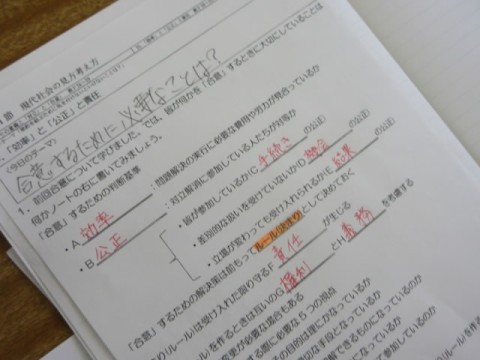 節 現代社会の見方考え方
「効率」と「公正」と責任
〈今日のテーマ〉
合意するために必要なことは?
1. 前回合意について学びました。では、皆が何かを「合意」するときに大切にしていることは
何かノートの右に書いてみましょう。
「合意」するための判断基準
・A 効率 :問題解決の実行に必要な費用や労力が整合っているか
・B 公正 :対立解消に参加している人たちが対等か
・皆が参加しているか(C 手続き の公正)
・差別的な扱いを受けていないか(D 機会 の公正)
・立場が変わっても受け入れられるか(E 結果 の公正)
「合意」するための解決策は前もってルール(決まり)として決めておく
(ルール)は受け入れた限り守るF 責任 が生じる
を作るときは互いのG 権利 とH 義務 を考慮する
変更が必要な場合もある
る際に必要な5つの視点
の目的は明確になっているか
段となっているか
解できるものになっているか
なものになっているのか